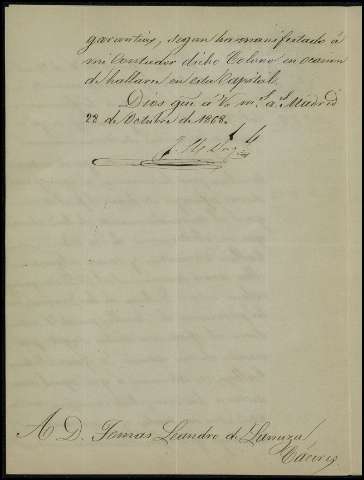 garantias, segun ha manifestado á
mi Contador dicho Colono en ocasion
de hallarse en esta Capital.
Dios gue á V. ms. as. Madrid
28 de Octubre de 1868.
A D. Tomas Leandro de Larruza
Cáceres